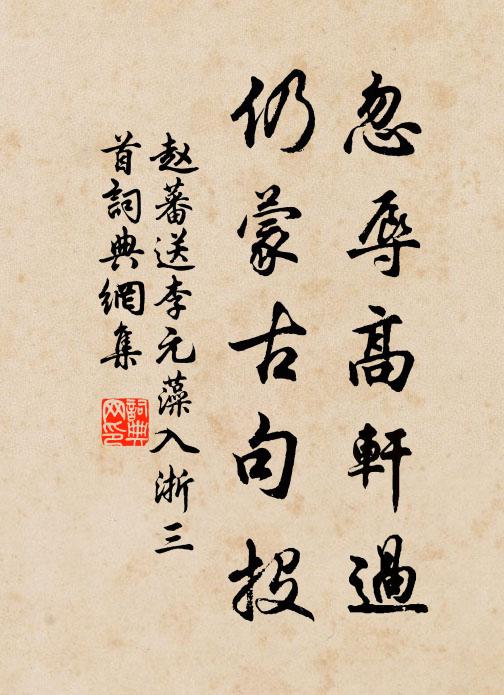 忽辱高軒過
仍蒙古句投
赵蕃送李元藻入浙三
首詞典網集
詞典网印